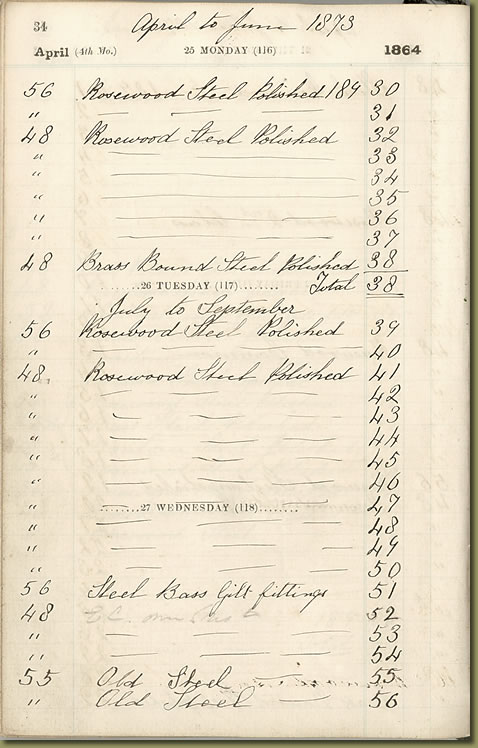 34 April to June 1873
April (4th Mo.) 25 MONDAY (116) 1864
56 Rosewood Steel Polished 189 30
" — — — 31
48 Rosewood Steel Polished 32
" — 33
" — 34
" — 35
" — 36
" — 37
48 Brass Bound Steel Polished 38
26 TUESDAY (117) Total 38
July to September
56 Rosewood Steel Polished 39
" — 40
48 Rosewood Steel Polished 41
" — — — — 42
" — — — — 43
" — — — — 44
" — — — — 45
" — — — — 46
" 27 WEDNESDAY (118) 47
" — — — — 48
" — — — — 49
" — — — — 50
56 Steel Bass Gilt fittings 51
48 52
" — — — — 53
" — — — — 54
55 Old Steel 55
" Old Steel — 56